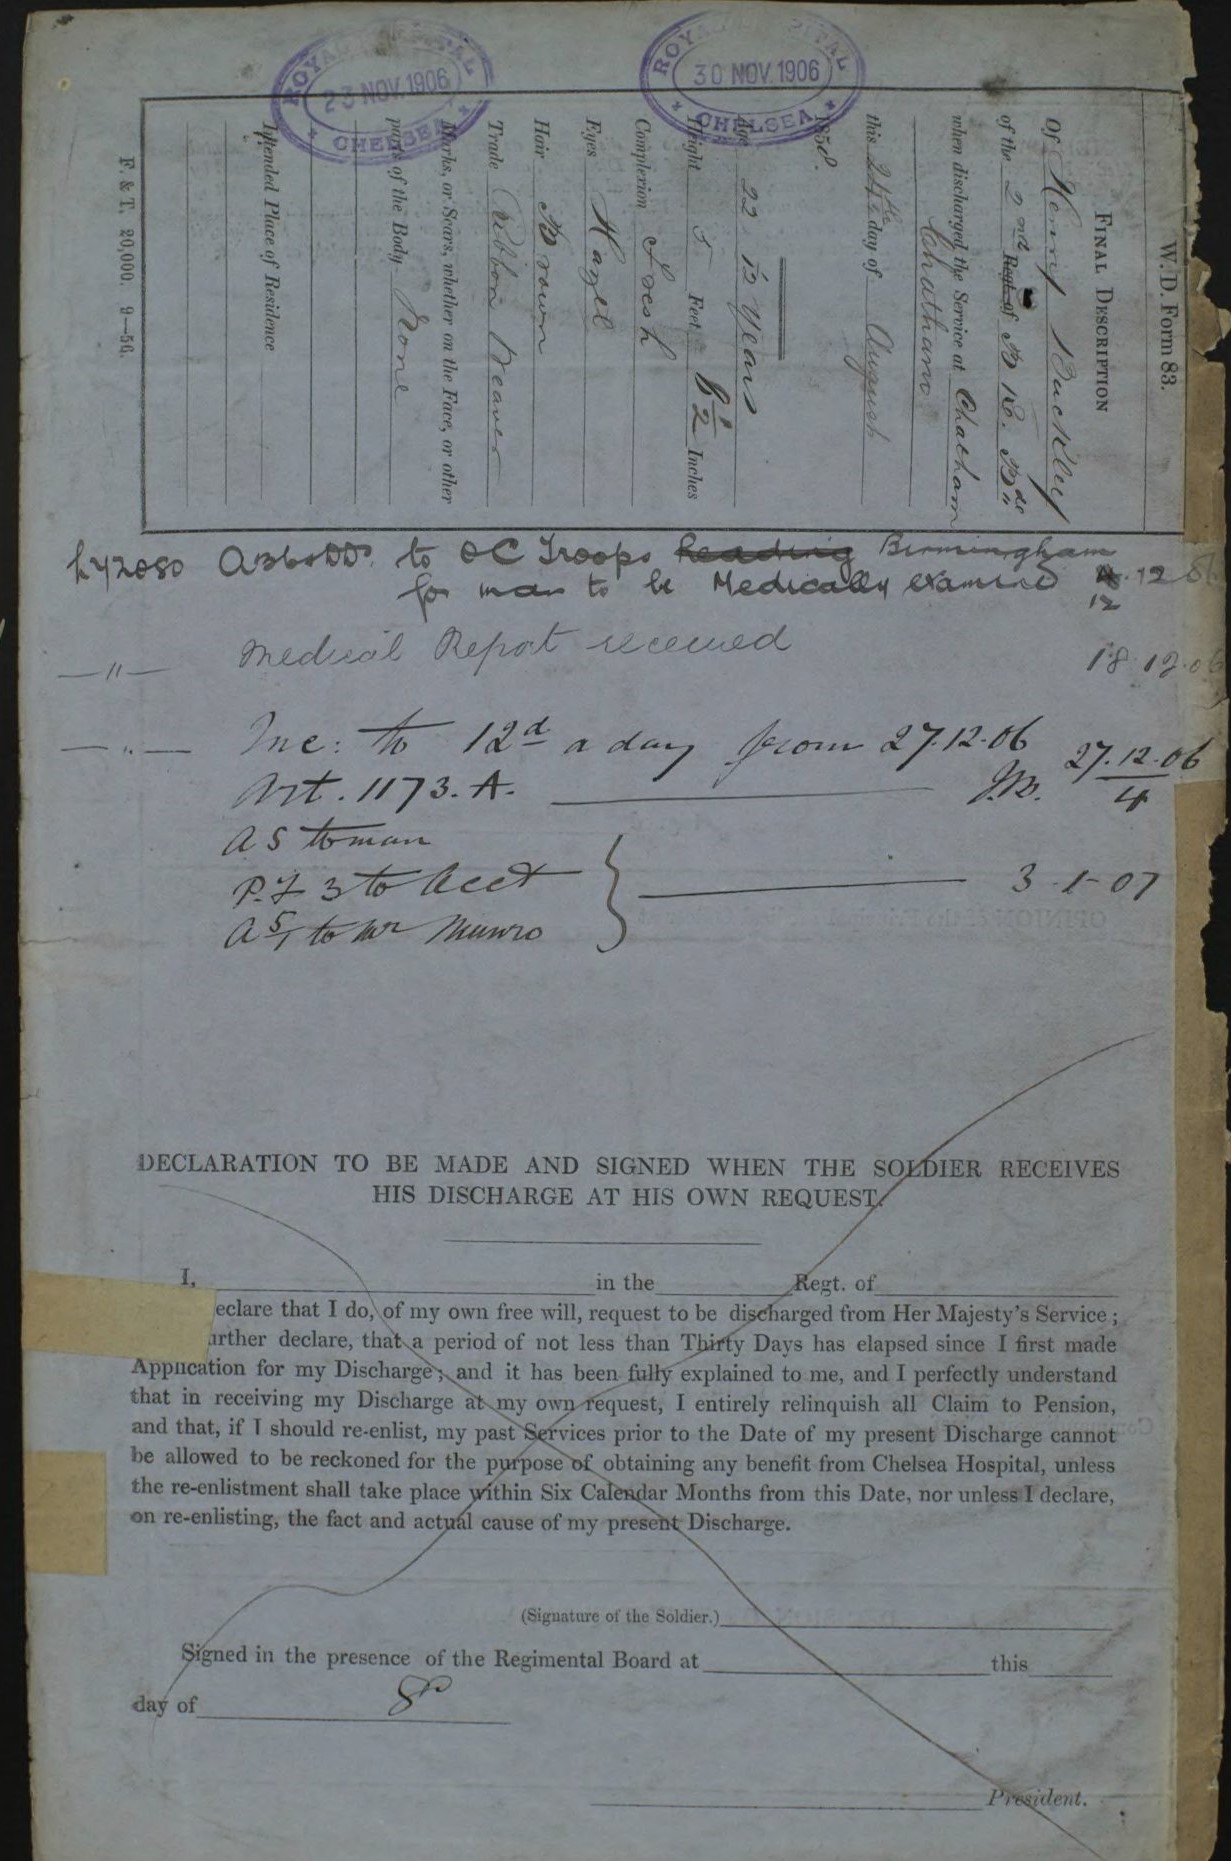 ROYAL HOSPITAL
23 NOV. 1906
CHELSEA
ROYAL HOSPITAL
30 NOV. 1906
CHELSEA
W. D. Form 83.
FINAL DESCRIPTION
Of Henry Buckley
of the 2nd Regt. of
when discharged the Service at Chatham
Chatham
this 24th day of August
1858.
Age 22 Years
Height 5 Feet 6 1/2 Inches
Complexion Fresh
Eyes Hazel
Hair Brown
Trade Ribbon Weaver
Marks, or Scars, whether on the Face, or other
parts of the Body None
Intended Place of Residence
F. & T. 20,000. 9—56.
to OC Troops Reading Birmingham
for man to be Medically examined 12
12
—〃— Medical Report received 18.12.06
—〃— Inc: to 12d a day from 27.12.06 27.12.06
Art. 1173. A. 4
A 5 to man
P.F 3 to Acct 3-1-07
A 5/1 to Mr Munro
DECLARATION TO BE MADE AND SIGNED WHEN THE SOLDIER RECEIVES
HIS DISCHARGE AT HIS OWN REQUEST.
I, in the Regt. of
eclare that I do, of my own free will, request to be discharged from Her Majesty's Service;
urther declare, that a period of not less than Thirty Days has elapsed since I first made
Application for my Discharge; and it has been fully explained to me, and I perfectly understand
that in receiving my Discharge at my own request, I entirely relinquish all Claim to Pension,
and that, if I should re-enlist, my past Services prior to the Date of my present Discharge cannot
be allowed to be reckoned for the purpose of obtaining any benefit from Chelsea Hospital, unless
the re-enlistment shall take place within Six Calendar Months from this Date, nor unless I declare,
on re-enlisting, the fact and actual cause of my present Discharge.
(Signature of the Soldier.)
Signed in the presence of the Regimental Board at this
day of
President.